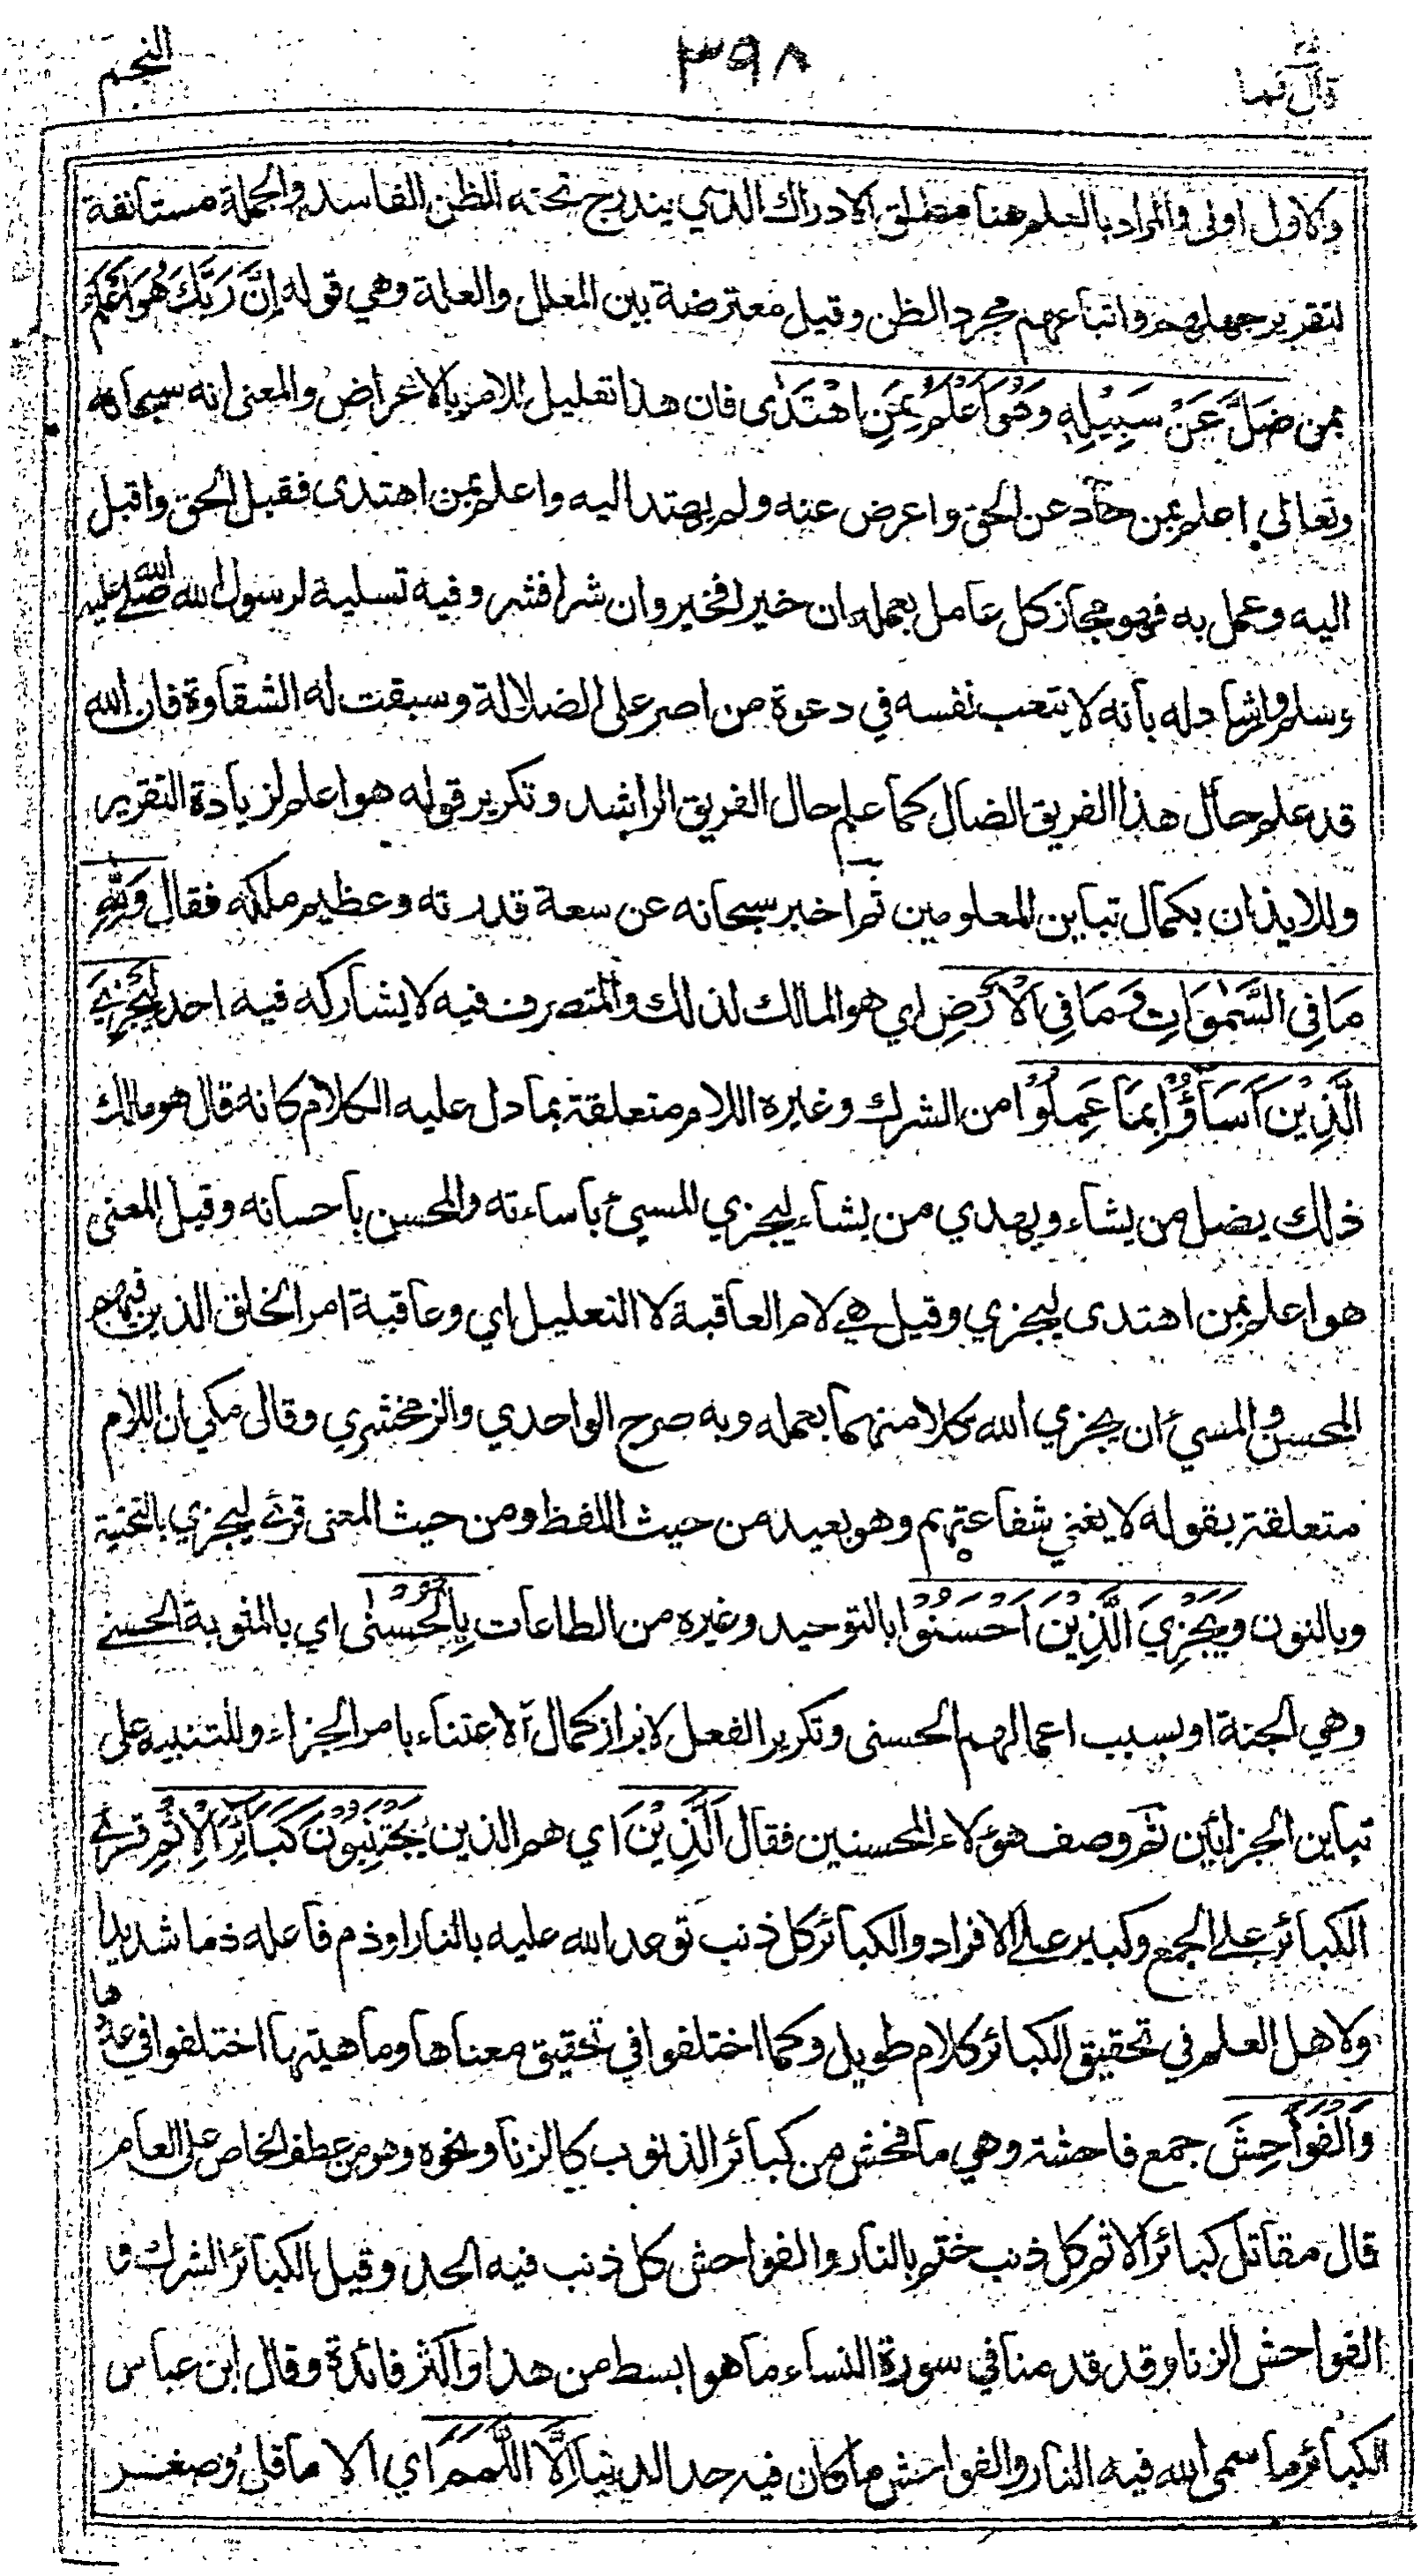 قال فما ٣٩٨ النجم
والاول اولى والمراد بالعلم هنا مطلق الادراك الذي يندرج تحته الظن الفاسد والجملة مستانفة
لتقرير جهلهم واتباعهم مجرد الظن وقيل معترضة بين المعلل والعلة وهي قوله إِنَّ رَبَّكَ هُوَ أَعْلَمُ
بمن ضَلَّ عَنْ سَبِيْلِهِ وَهُوَ أَعْلَمُ بِمَنِ اهْتَدٰى فان هذا تعليل للامر بالاعراض والمعنى انه سبحانه
وتعالى اعلم بمن حاد عن الحق واعرض عنه ولم يهتد اليه واعلم بمن اهتدى فقبل الحق واقبل
اليه وعمل به فهو مجاز كل عامل بعمله ان خيرا فخير وان شرا فشر وفيه تسلية لرسول الله صلى الله عليه
وسلم وارشاد له بانه لا يتعب نفسه في دعوة من اصر على الضلالة وسبقت له الشقاوة فان الله
قد علم حال هذا الفريق الضال كما علم حال الفريق الراشد وتكرير قوله هو اعلم لزيادة التقرير
وللايذان بكمال تباين المعلومين ثم اخبر سبحانه عن سعة قدرته وعظيم ملكه فقال وَلِلّٰهِ
مَا فِي السَّمٰوَاتِ وَمَا فِي الْأَرْضِ اي هو المالك لذلك والمتصرف فيه لا يشاركه فيه احد لِيَجْزِيَ
الَّذِيْنَ أَسَاؤُا بِمَا عَمِلُوْا من الشرك وغيره اللام متعلقة بما دل عليه الكلام كانه قال هو مالك
ذلك يضل من يشاء ويهدي من يشاء ليجزي المسئ باساءته والمحسن باحسانه وقيل المعنى
هو اعلم بمن اهتدى ليجزي وقيل هي لام العاقبة لا التعليل اي وعاقبة امر الخلق الذين فيهم
المحسن والمسئ ان يجزي الله كلا منهما بعمله وبه صرح الواحدي والزمخشري وقال مكي ان اللام
متعلقة بقوله لا يغني شفاعتهم وهو بعيد من حيث اللفظ ومن حيث المعنى قرئ ليجزي بالتحتية
وبالنون وَيَجْزِيَ الَّذِيْنَ أَحْسَنُوْا بالتوحيد وغيره من الطاعات بِالْحُسْنٰى اي بالمثوبة الحسنى
وهي الجنة او بسبب اعمالهم الحسنى وتكرير الفعل لابراز كمال الاعتناء بامر الجزاء وللتنبيه على
تباين الجزائين ثم وصف هؤلاء المحسنين فقال اَلَّذِيْنَ اي هم الذين يَجْتَنِبُوْنَ كَبَآئِرَ الْإِثْمِ قرئ
الكبائر على الجمع وكبير على الافراد والكبائر كل ذنب توعد الله عليه بالنار او ذم فاعله ذما شديدا
ولاهل العلم في تحقيق الكبائر كلام طويل وكما اختلفوا في تحقيق معناها وماهيتها اختلفوا في عددها
وَالْفَوَاحِشَ جمع فاحشة وهي ما فحش من كبائر الذنوب كالزنا ونحوه وهو من عطف الخاص على العام
قال مقاتل كبائر الاثم كل ذنب ختم بالنار والفواحش كل ذنب فيه الحد وقيل الكبائر الشرك و
الفواحش الزنا وقد قدمنا في سورة النساء ما هو ابسط من هذا واكثر فائدة وقال ابن عباس
الكبائر ما سمى الله فيه النار والفواحش ما كان فيه حد الدنيا إِلَّا اللَّمَمَ اي الا ما قل وصغر